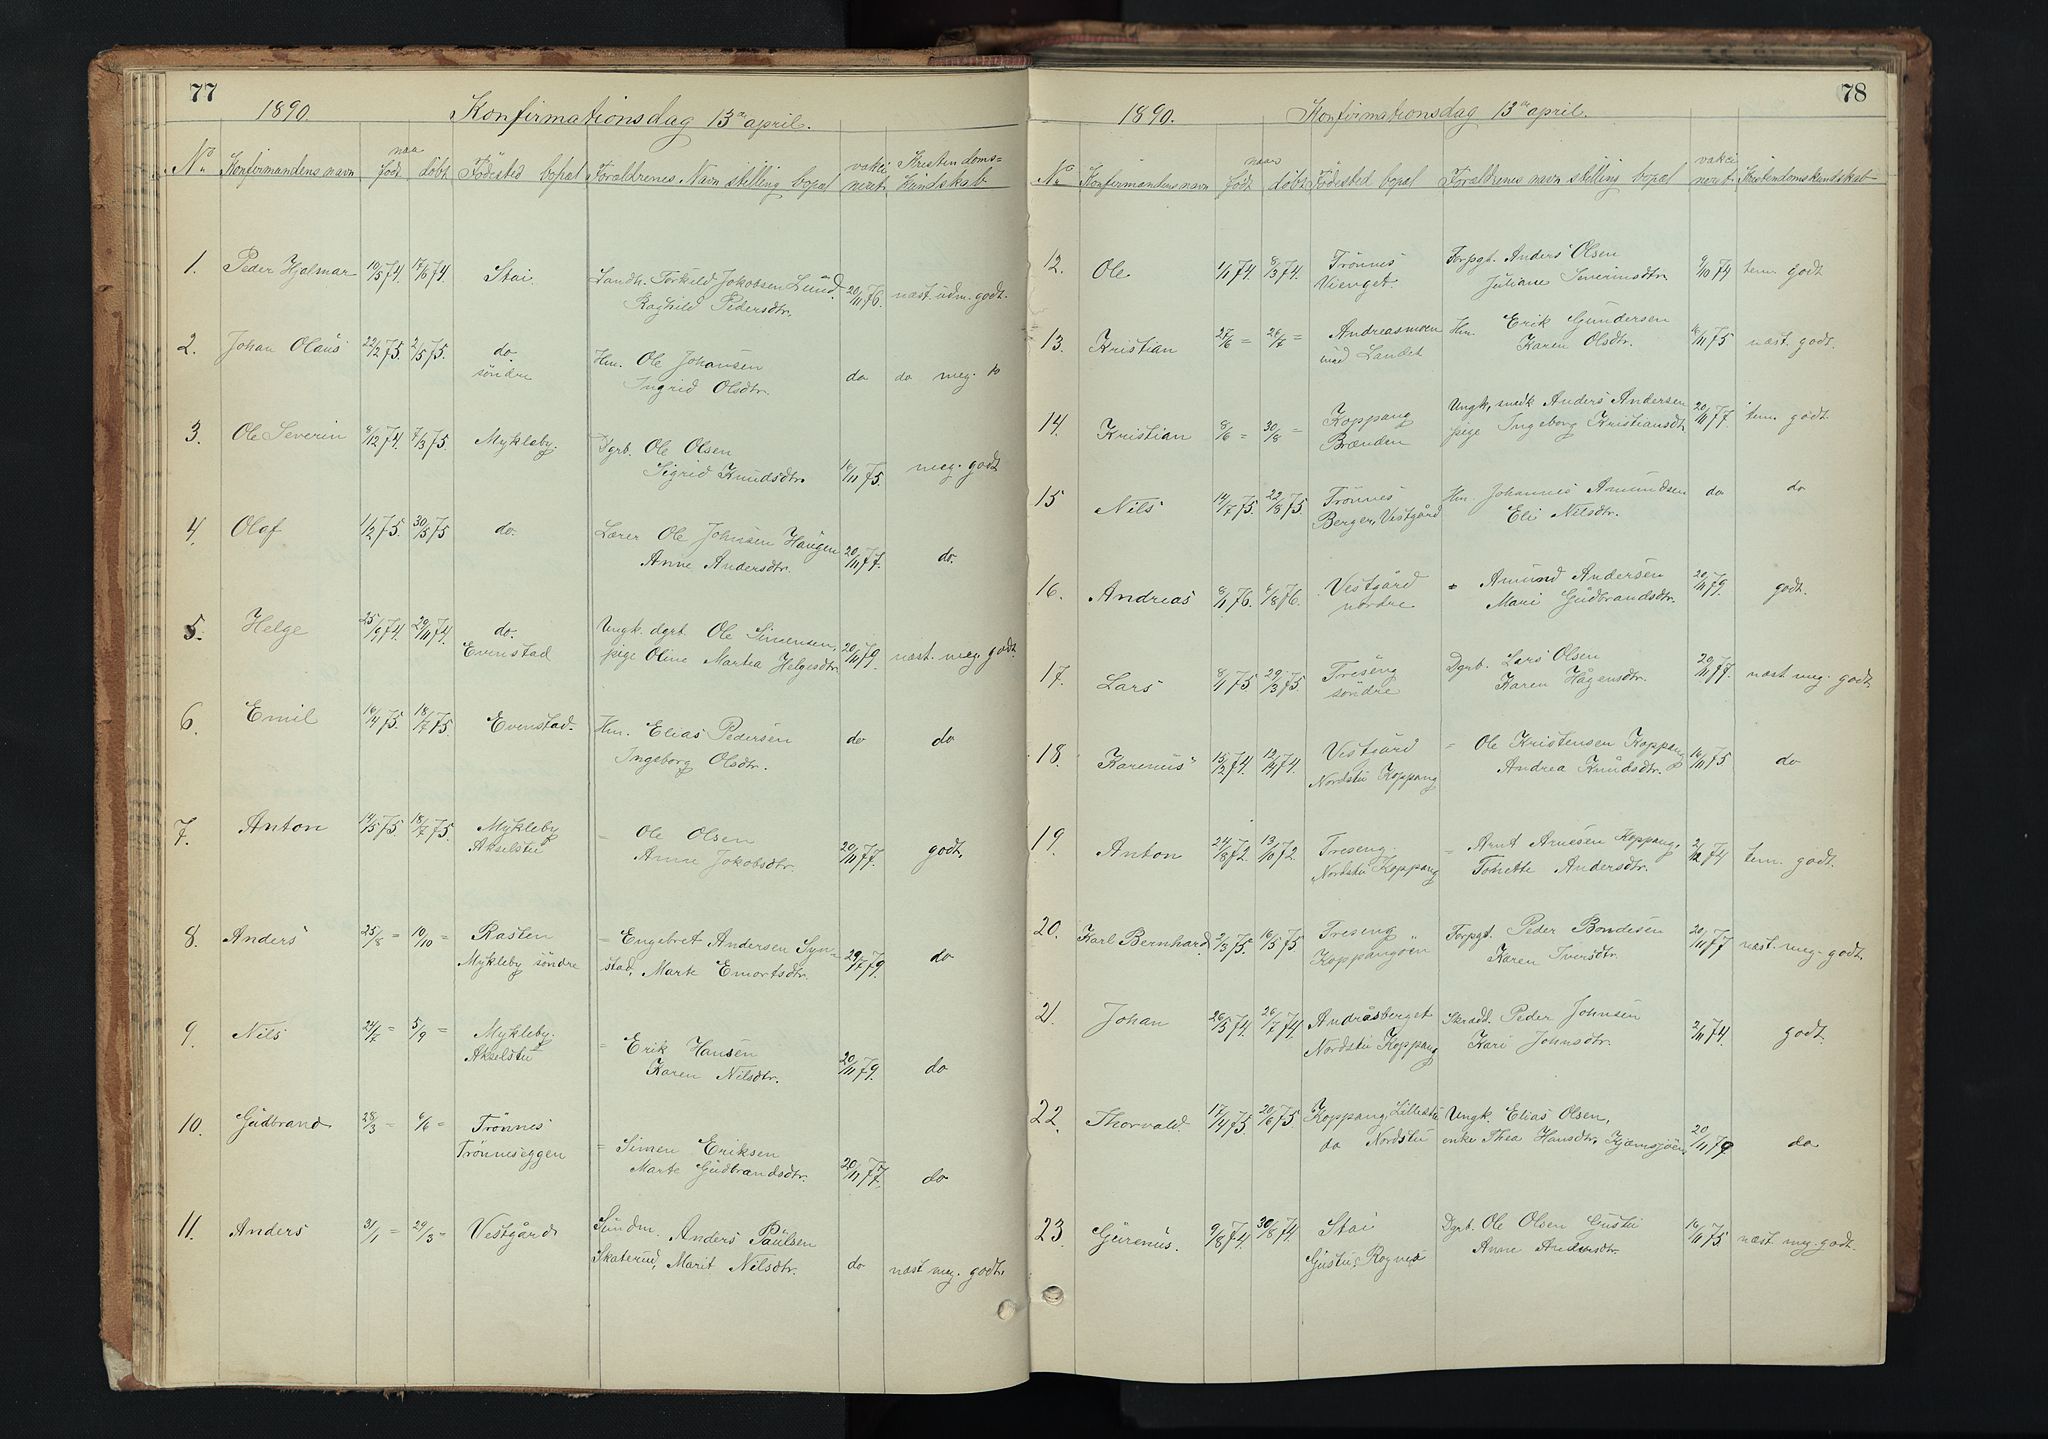 77
1890. Konfirmationsdag 13de april.
No. Konfirmandens navn naar født døbt Fødested bopæl Forældrenes Navn stilling bopæl vakcineret Kristendomskundskab
1. Peder Hjalmar 10/5 74. 17/6 74. Stai. Landh. Torkild Jokobsen Lund. 20/11 76. næst. udm. godt.
Raghild Pedersdtr.
2. Johan Olaus 22/2 75. 2/5 75. do. Hm. Ole Johansen do do meg. do
søndre Ingrid Olsdtr.
3. Ole Severin 8/12 74. 7/3 75. Mykleby. Dgrb. Ole Olsen 16/11 75. meg. godt
Sigrid Knudsdtr.
4. Olaf 1/2 75. 30/5 75 do. Lærer Ole Johnsen Haugen 20/11 77. do.
Anne Andersdtr.
5. Helge 25/9 74. 20/11 74. do. Ungk. dgrb. Ole Simensen, 20/11 79. næst. meg. godt.
Evenstad pige Oline Martea Helgesdtr.
6. Emil 16/4 75. 18/7 75. Evenstad. Hm. Elias Pedersen do do
Ingeborg Olsdtr.
7. Anton 14/5 75. 18/7 75. Mykleby = Ole Olsen 20/11 77. godt.
Akselstu Anne Jokobsdtr.
8. Anders 25/8 = 10/10 = Rasten = Engebret Andersen Syn- 29/7 79. do
Mykleby søndre stad, Marte Emortsdtr.
9. Nils 24/7 = 5/9 = Mykleby. = Erik Hansen 20/11 79. do
Akselstu Karen Nilsdtr.
10. Gudbrand 28/3 = 6/6 = Trønnes = Simen Eriksen 20/11 77. do
Trønneseggen Marte Gudbrandsdtr.
11. Anders 31/1 = 29/3 = Vestgård Sundm. Anders Paulsen do næst meg. godt.
Skaterud, Marit Nilsdtr.
78
1890. Konfirmationsdag 13de april.
No. Konfirmandens navn naar født døbt Fødested bopæl Forældrenes navn stilling bopæl vakcineret Kristendomskundskab
12. Ole 1/1 74. 8/3 74. Trønnes Forpgt. Anders Olsen 9/10 74 tem. godt
Vienget. Juliane Severinsdtr.
13. Kristian 27/6 = 26/7 = Andreasmoen Hm. Erik Gundersen 16/11 75 næst. godt.
ved Landet Karen Olsdtr.
14. Kristian 8/6 = 30/8 = Koppang Ungk. smed Anders Andersen 20/11 77. tem. godt.
Brænden pige Ingeborg Kristiansdtr.
15 Nils 14/7 75. 22/8 75. Trønnes Hm. Johannes Amundsen do do
Berger, Vestgård Eli Nilsdtr.
16. Andreas 8/1 76. 6/8 76. Vestgård = Amund Andersen 20/11 79. godt.
nordre Mari Gudbrandsdtr.
17. Lars 8/1 75 29/3 75. Treseng Dgrb. Lars Olsen 20/11 77. næst meg. godt.
søndre Karen Hågensdtr.
18. Karenus 15/2 74. 12/4 74. Vestgård = Ole Kristensen Koppang 16/11 75 do
Nordstu Koppang Andrea Knudsdtr.
19. Anton 24/8 72. 13/10 72. Treseng. = Arnt Arnesen Koppang. 2/12 74 tem. godt.
Nordstu Koppang Tonette Andersdtr.
20. Karl Bernhard. 2/3 75. 16/5 75 Treseng Forpgt. Peder Bondesen 20/11 77 næst. meg. godt.
Koppangøen Karen Iversdtr.
21. Johan 26/5 74. 26/7 74. Andråsberget Skrædd. Peder Johnsen 2/11 74. godt.
Nordstu Koppang Kari Johnsdtr.
22. Thorvald. 17/4 75. 20/6 75 Koppang, Lillestu Ungk. Elias Olsen, 20/11 79. do
do Nordstu enke Thea Hansdtr. Kjemsjøen
23. Gurenus. 9/8 74. 30/8 74. Stai Dgrb. Ole Olsen Gustu 16/11 75. næst. meg. godt.
Gustu, Rognes Anne Andersdtr.